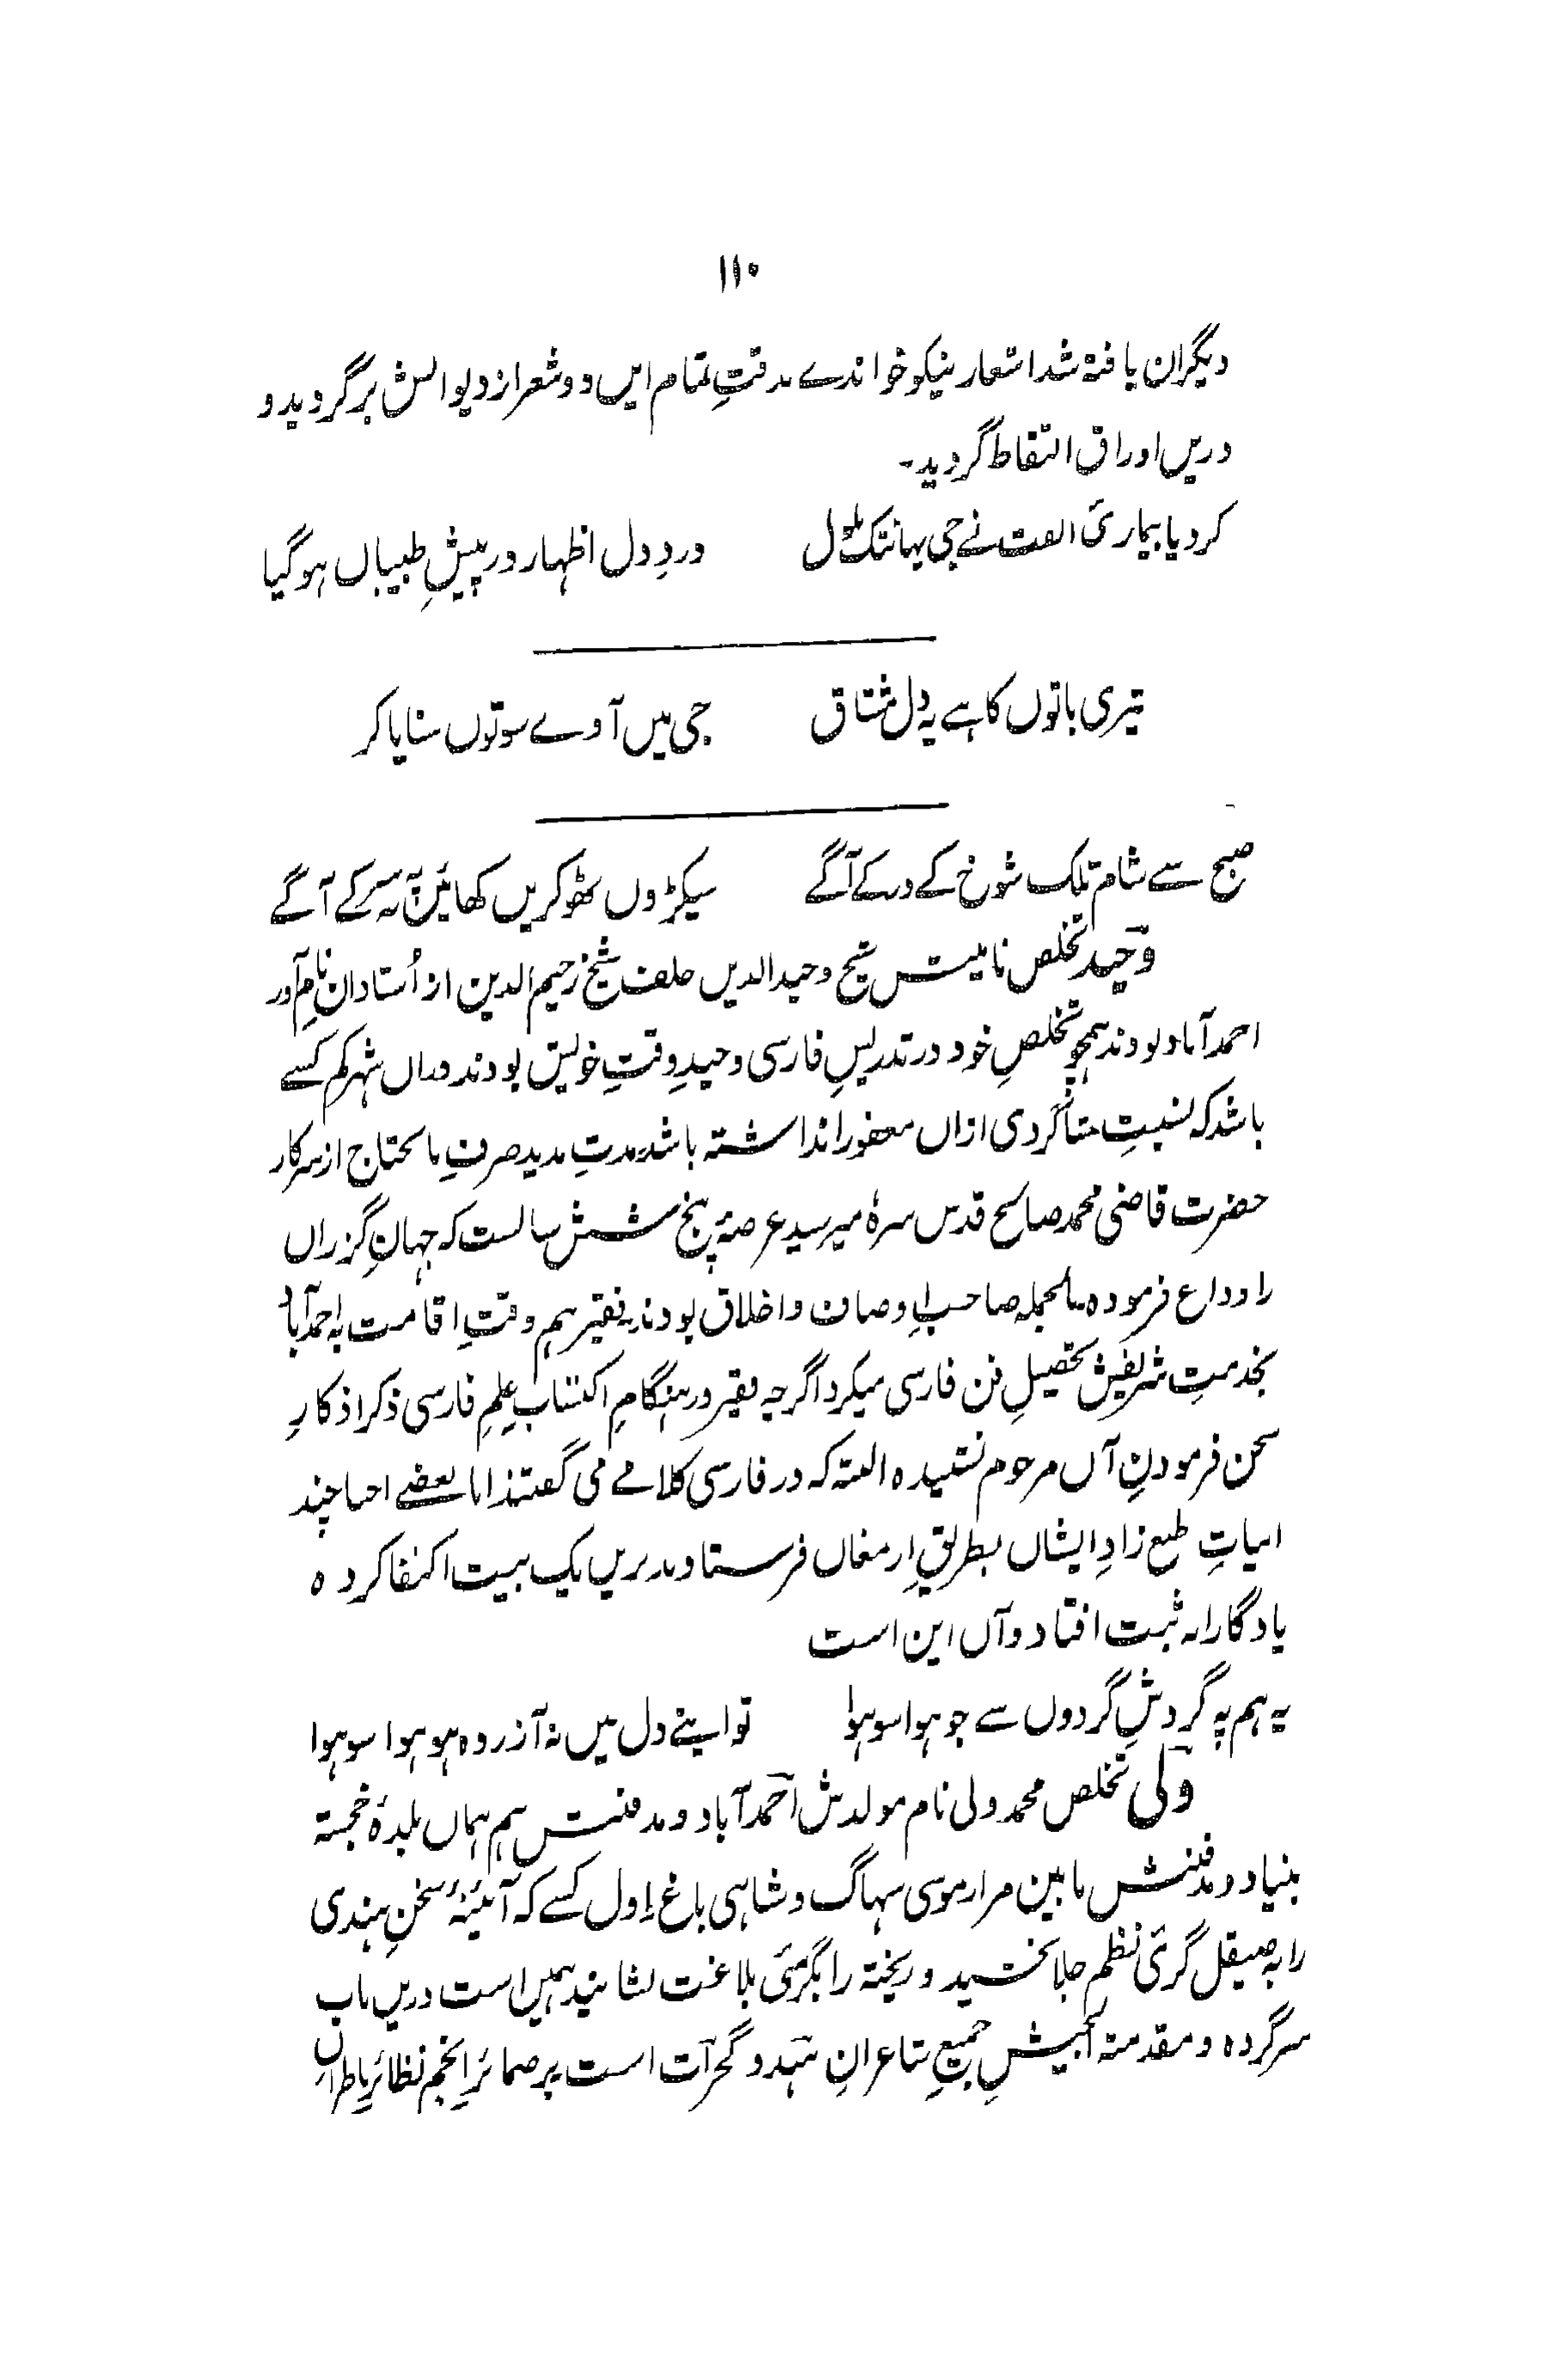 ۱۱۰
دیگران یافتہ شد اشعار نیکو خواندے بدقتِ تمام ایں دو شعر از دیوانش برگردید و
دریں اوراق التقاط گردید۔
کر دیا بیماریٔ الفت نے جی یہانتک ملول    دردِ دل اظہار در پیشِ طبیباں ہو گیا
تیری باتوں کا ہے یہ دل مشتاق    جی میں آوے سو توں سنایا کر
صبح سے شام تلک شوخ کے در کے آگے    سیکڑوں ٹھوکریں کھائیں پہ نہ سرکے آگے
وحید تخلص نامیست شیخ وحید الدین خلف شیخ رحیم الدین از اُستادانِ نام آور
احمد آباد بودند ہمچو تخلصِ خود در تدریسِ فارسی وحیدِ وقتِ خویش بودند دراں شہر کم کسے
باشد کہ نسبتِ شاگردی ازاں مغفور را نداشتہ باشد مدتِ مدید صرفِ مایحتاج از سرکار
حضرت قاضی محمد صالح قدس سرہٗ میرسید عرصۂ پنج شش سالست کہ جہانِ گزراں
را وداع فرمودہ بالجملہ صاحبِ اوصاف و اخلاق بودند فقیر ہم وقتِ اقامت بہ احمد آباد
بخدمتِ شریفش تحصیلِ فن فارسی میکرد اگرچہ فقیر در ہنگامِ اکتسابِ علمِ فارسی ذکر اذکارِ
سخن فرمودنِ آں مرحوم نشنیدہ البتہ کہ در فارسی کلامے می گفتند اما بعضے احبا چند
ابیاتِ طبع زادِ ایشاں بطریقِ ارمغاں فرستادند بریں یک بیت اکتفا کردہ
یادگارانہ ثبت افتاد و آں این است
یہ ہم پہ گردشِ گردوں سے جو ہوا سو ہوا    تو اپنے دل میں نہ آزردہ ہو ہوا سو ہوا
ولی تخلص محمد ولی نام مولدش احمد آباد و مدفنش ہم ہماں بلدۂ خجستہ
بنیاد و مدفنش مابین مزار موسی سہاگ و شاہی باغ اول کسے کہ آئینۂ سخنِ ہندی
را بہ صیقل گریٔ نظم جلا بخشید و ریختہ را بگرمئی بلاغت نشانید ہمیں است دریں باب
سرگردہ و مقدمتہ الجیشِ جمیعِ شاعرانِ ہند و گجرات است بر ضمائرِ انجم نظائرِ